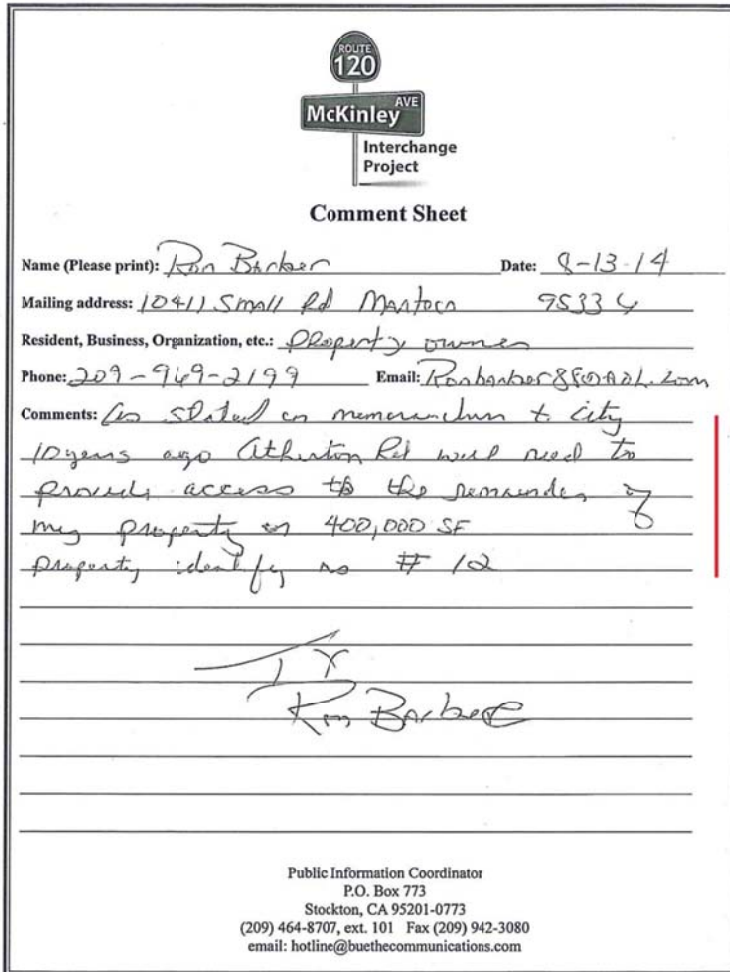 ROUTE
120
McKinley AVE
Interchange
Project
Comment Sheet
Name (Please print): Ron Barber Date: 8-13-14
Mailing address: 10411 Small Rd Manteca 95336
Resident, Business, Organization, etc.: Property owner
Phone: 209-969-2199 Email: Ronbarber88@AOL.com
Comments: As stated on memorandum to City
10 years ago Atherton Rd will need to
provide access to the remainder of
my property on 400,000 SF
property identify as # 12
TX
Ron Barber
Public Information Coordinator
P.O. Box 773
Stockton, CA 95201-0773
(209) 464-8707, ext. 101 Fax (209) 942-3080
email: hotline@buethecommunications.com